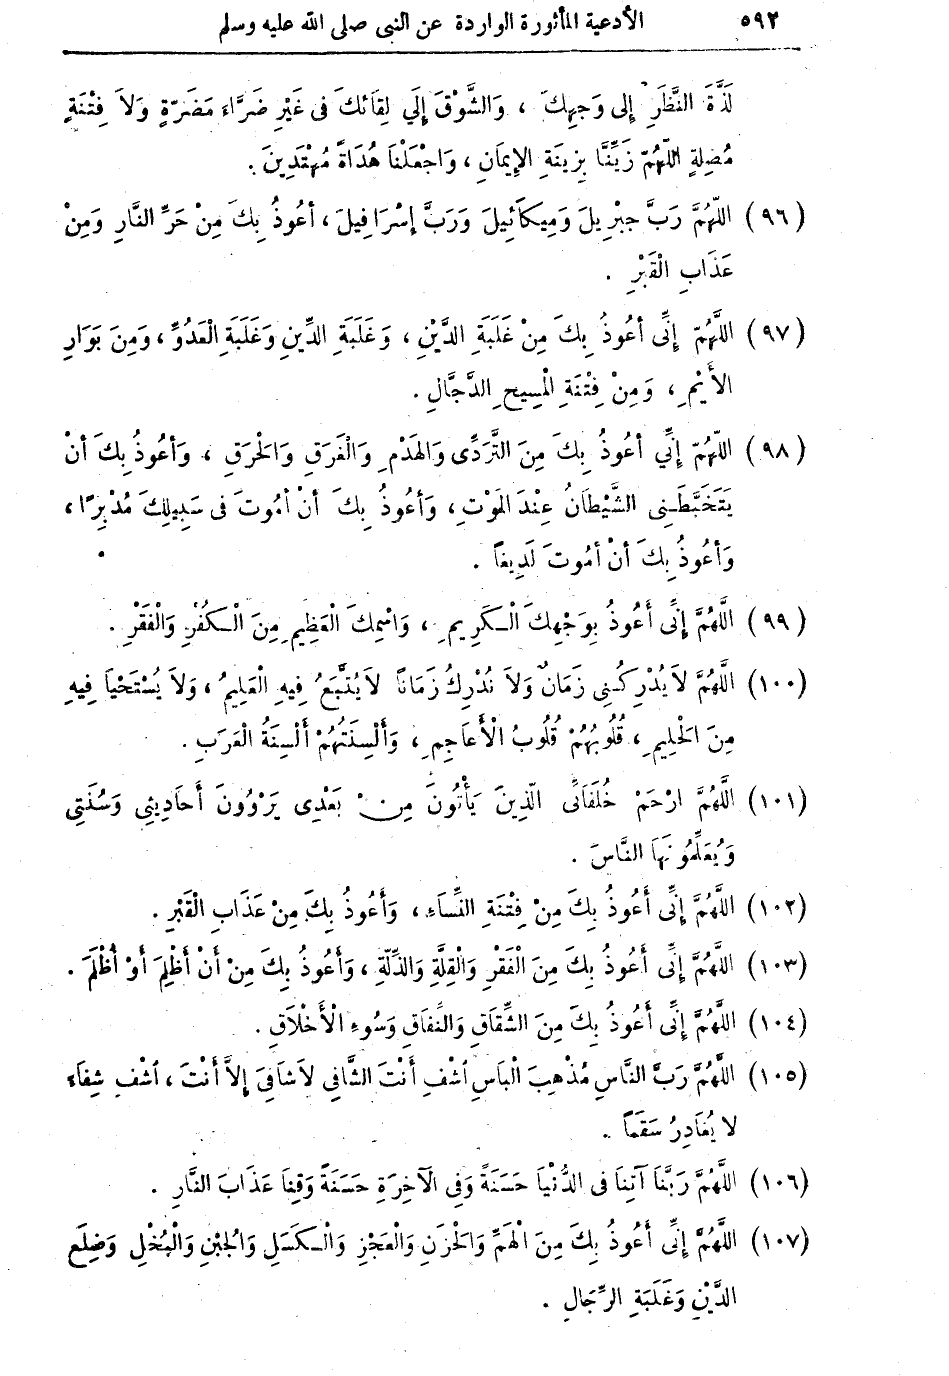 ٥٩٢ الأدعية المأثورة الواردة عن النبى صلى الله عليه وسلم
لَذَّةَ النَّظَرِ إِلى وَجهِكَ ، وَالشَّوْقَ إِلَي لِقَائكَ فى غَيْرِ ضَرَّاءَ مَضَرّةٍ وَلاَ فِتْنَةٍ
مُضِلةٍ اللّهُمّ زَيِّنَّا بِزِينَةِ الإِيمَانِ ، وَاجْعَلْنَا هُدَاةً مُهْتَدِينَ .
(٩٦) اللّهُمَّ رَبَّ جِبْرِيلَ وَمِيكَائِيلَ وَرَبَّ إسْرَافِيلَ ، أعُوذُ بِكَ مِنْ حَرِّ النَّارِ وَمِنْ
عَذَابِ الْقَبْرِ .
(٩٧) اللَّهُمّ إِنِّى أعُوذُ بِكَ مِنْ غَلَبَةِ الدَّيْنِ ، وَغَلَبَةِ الدِّينِ وَغَلَبَةِ الْعَدُوِّ ، وَمِنَ بَوَارِ
الأَيْمِ ، وَمِنْ فِتْنَةِ الْمسِيحِ الدَّجَّالِ .
(٩٨) اللّهُمّ إِنِّي أعُوذُ بِكَ مِنَ التَّرَدِّى وَالهَدْمِ وَالْغَرَقِ وَالْحَرَقِ ، وَأعُوذُ بِكَ أنْ
يَتَخَبَّطَنِى الشَّيْطَانُ عِنْدَ الْمَوْتِ ، وَأعُوذُ بِكَ أنْ أمُوتَ فى سَبِيلِكَ مُدْبِرًا ،
وَأعُوذُ بِكَ أنْ أمُوتَ لَدِيغًا .
(٩٩) اللَّهُمَّ إِنِّى أَعُوذُ بِوَجْهِكَ الْكَرِيمِ ، وَاسْمِكَ الْعَظِيمِ مِنَ الْكُفْرِ وَالْفَقْرِ .
(١٠٠) اللَّهُمَّ لاَ يُدْرِكُنِى زَمَانٌ وَلاَ نُدْرِكُ زَمَانًا لاَ يُتَّبَعُ فِيهِ الْعَلِيمُ ، وَلاَ يُسْتَحْيَا فِيهِ
مِنَ الحَلِيمِ ، قُلُوبُهُمْ قُلُوبُ الْأَعَاجِمِ ، وَأَلْسِنَتُهُمْ أَلْسِنَةُ الْعَرَبِ .
(١٠١) اللَّهُمَّ ارْحَمْ خُلَفَائى الّذِينَ يَأْتُونَ مِنْ بَعْدِى يَرْوُونَ أَحَادِيثِى وَسُنَّتِى
وَيُعَلِّمُونَهَا النَّاسَ .
(١٠٢) اللَّهُمَّ إِنِّى أَعُوذُ بِكَ مِنْ فِتْنَةِ النِّسَاءِ ، وَأَعُوذُ بِكَ مِنْ عَذَابِ الْقَبْرِ .
(١٠٣) اللَّهُمَّ إِنِّى أَعُوذُ بِكَ مِنَ الْفَقْرِ وَالْقِلَّةِ وَالذِّلَّةِ ، وَأَعُوذُ بِكَ مِنْ أَنْ أَظْلِمَ أَوْ أُظْلَمَ .
(١٠٤) اللَّهُمَّ إِنِّى أَعُوذُ بِكَ مِنَ الشِّقَاقِ وَالنِّفَاقِ وَسُوءِ الْأَخْلَاقِ .
(١٠٥) اللَّهُمَّ رَبَّ النَّاسِ مُذْهِبَ الْبَاسِ اُشْفِ أَنْتَ الشَّافِى لاَ شَافِىَ إِلاَّ أَنْتَ ، اُشْفِ شِفَاءً
لا يُغَادِرُ سَقَمًا .
(١٠٦) اللَّهُمَّ رَبَّنَا آتِنَا فى الدُّنْيَا حَسَنَةً وَفى الْآخِرَةِ حَسَنَةً وَقِنَا عَذَابَ النَّارِ .
(١٠٧) اللَّهُمَّ إِنِّى أَعُوذُ بِكَ مِنَ الْهَمِّ وَالْحَزَنِ وَالْعَجْزِ وَالْكَسَلِ وَالْجُبْنِ وَالْبُخْلِ وَضِلَعِ
الدَّيْنِ وَغَلَبَةِ الرِّجَالِ .